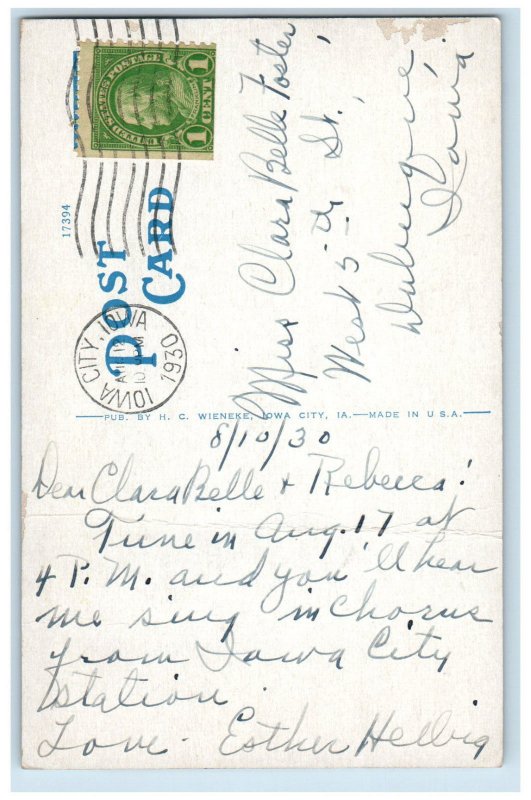 UNITED STATES POSTAGE
1 CENT 1
17394
POST
CARD
IOWA CITY, IOWA
12
1930
Miss ClaraBelle Foster,
West 5th St.,
Dubuque,
Iowa.
PUB. BY H. C. WIENEKE, IOWA CITY, IA.—MADE IN U.S.A.
8/10/30
Dear ClaraBelle & Rebecca:
Tune in Aug. 17 at
4 P.M. and you'll hear
me sing in Chorus
from Iowa City
station.
Love. Esther Helbig